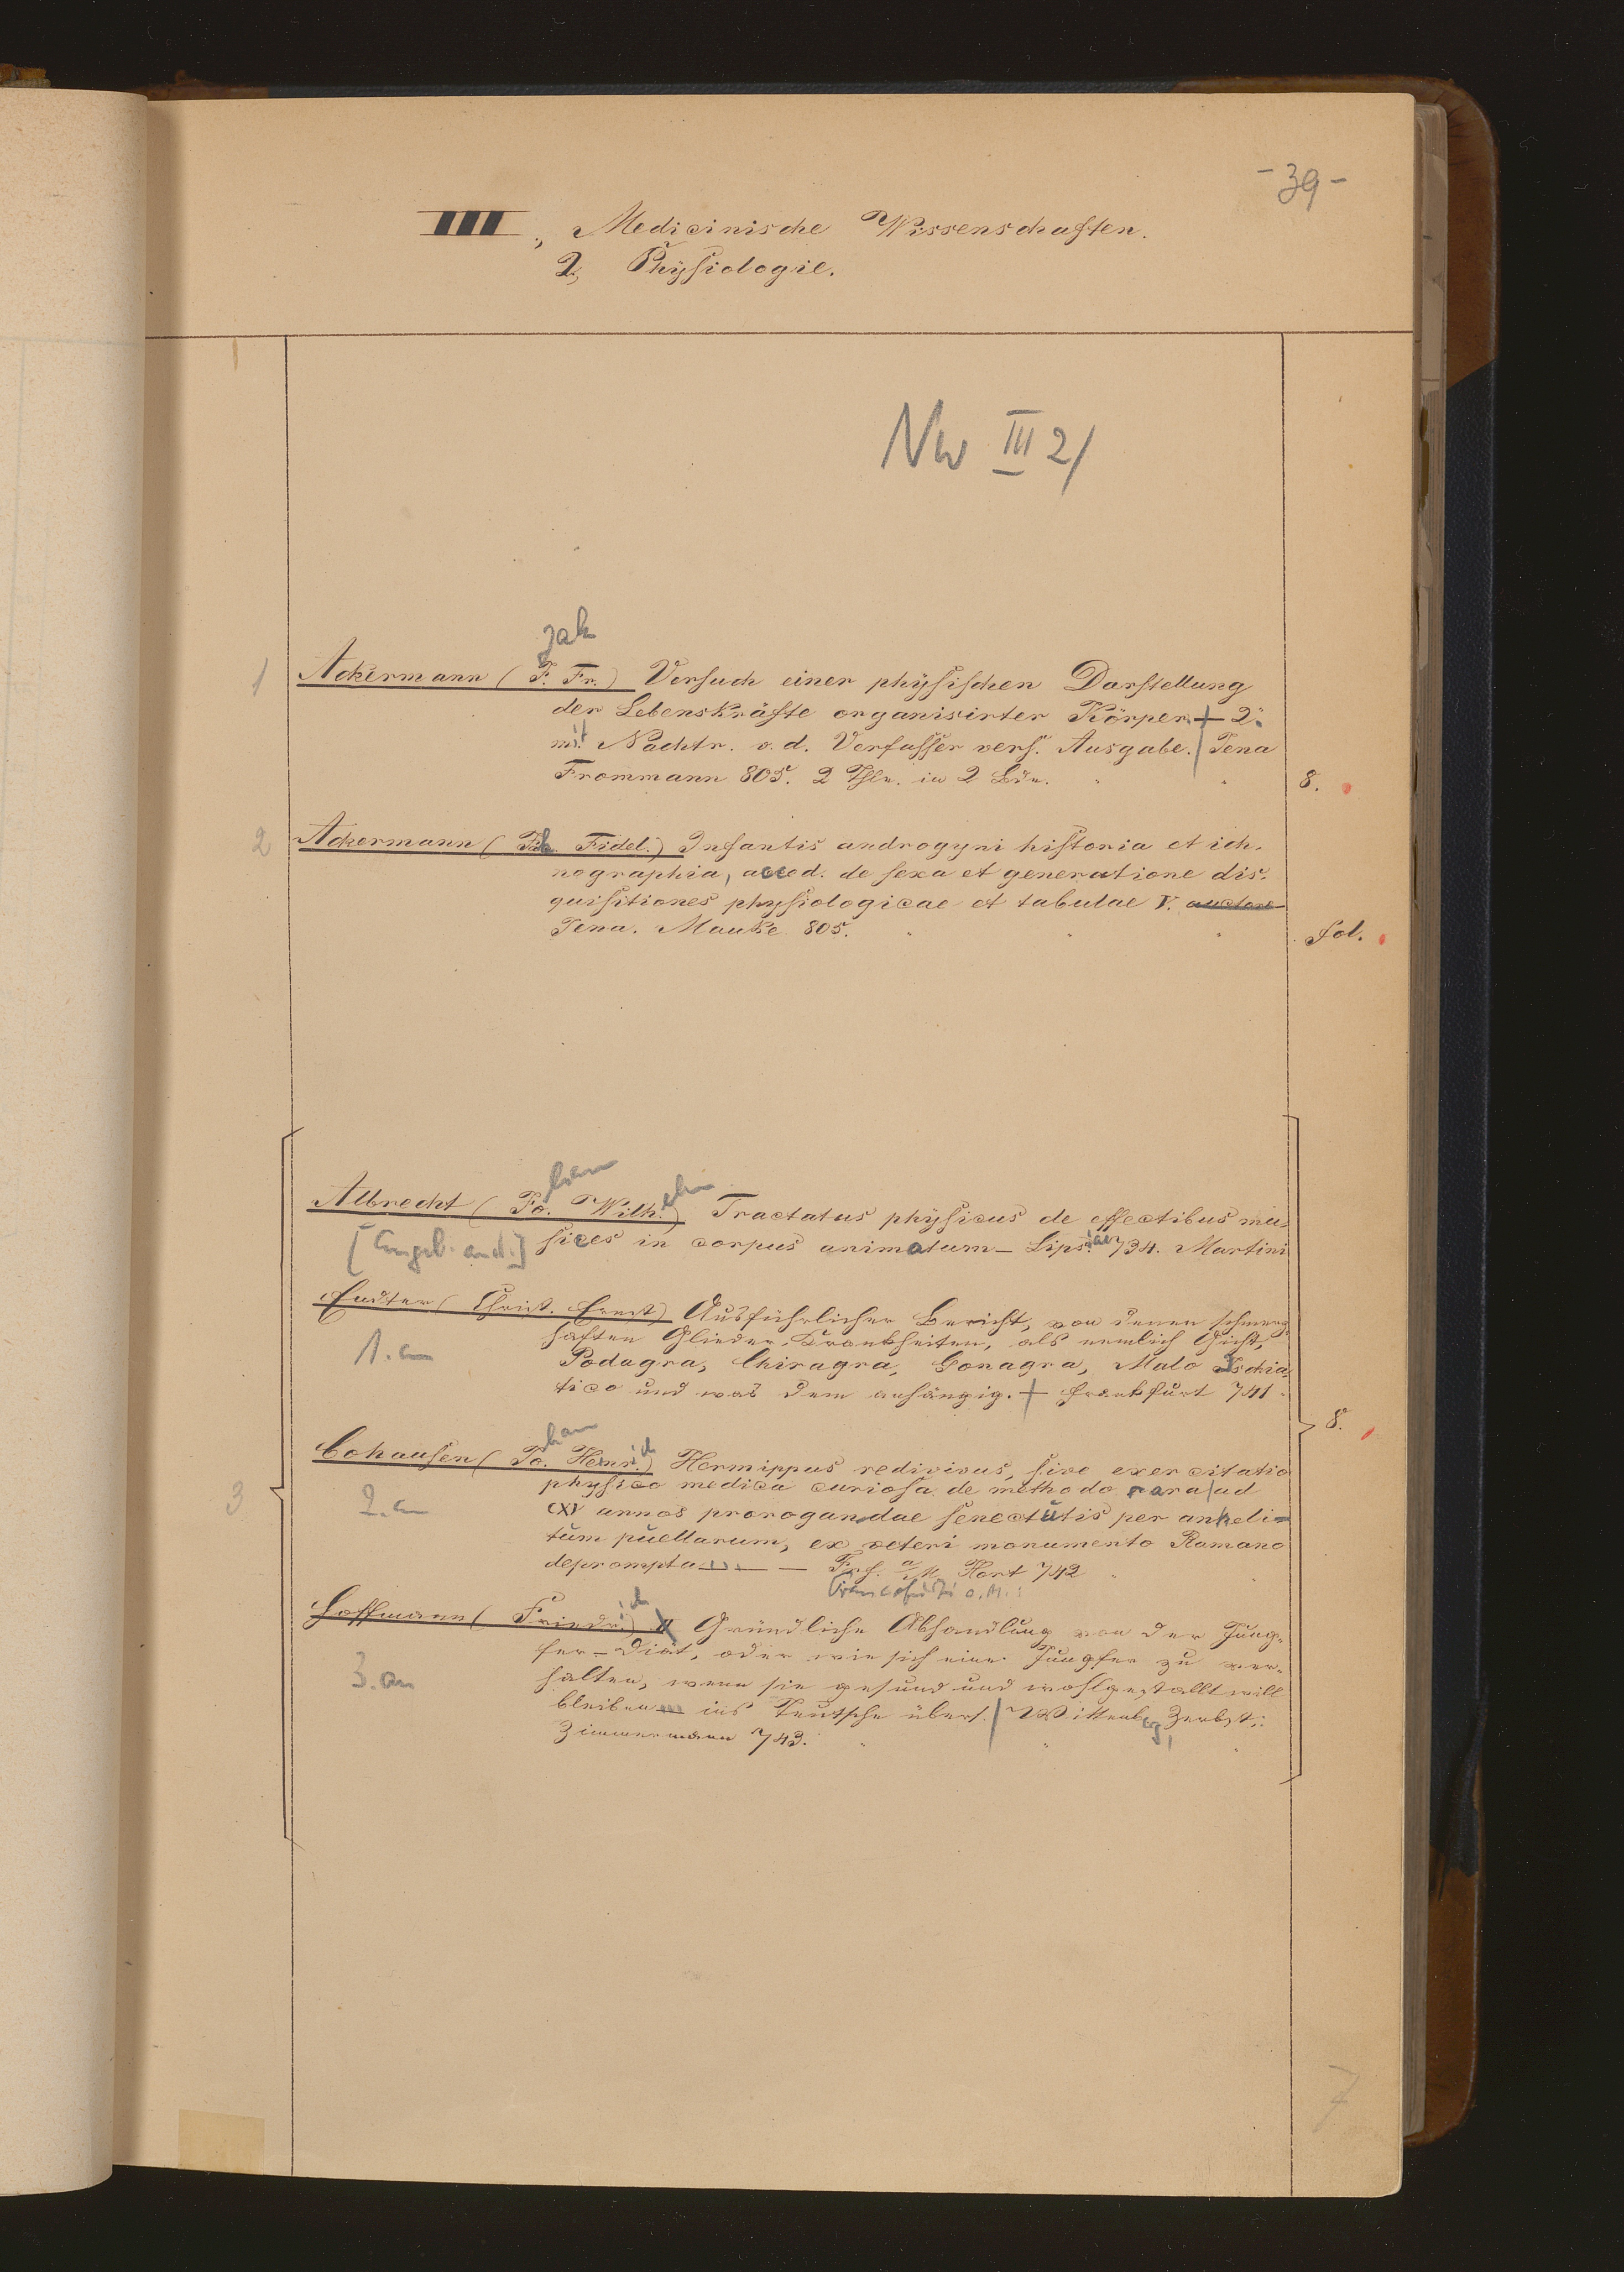 - 39 -
III, Medicinische Wissenschaften.
2, Physiologie.
Nw III 2/
Jak
1 Ackermann (J. Fr.) Versuch einer physischen Darstellung
der Lebenskräfte organisirter Körper. + 2.
mit Nachtr. v. d. Verfasser vers. Ausgabe. | Jena
Frommann 805. 2 Thle. in 2 Bdn. 8.
2 Ackermann ( Fidel.) Infantis androgyni historia et ich-
nographia, acced. de sexu et generatione dis-
quisitiones physiologicae et tabulae V. auctore
Jena. Mauke 805. fol.
hann elm
Albrecht (Jo. Wilh.) Tractatus physicus de effectibus mu-
[Angeb. and.] sices in corpus animatum - Lips.iae 734. Martini
Eudter (Christ. Ernst) Ausführlicher Bericht, von denen schmerz-
haften Glieder-Krankheiten, als nemlich Gicht,
1. an Podagra, Chiragra, Gonagra, Malo Ischia-
tico und was dem anhängig. + Frankfurt 741
8.
han ich
Cohausen (Jo. Heinr.) Hermippus redivivus, sive exercitatio
physico medica curiosa de methodo rara | ad
3 2. an CXV annos prorogandae senectutis per anheli-
tum puellarum, ex veteri monumento Romano
deprompta - Frf. a/M Hort 742
Francofurti a. M.:
ich
Hoffmann (Friedr.) Gründliche Abhandlung von der Jung-
fer-Diät, oder wie sich eine Jungfer zu ver-
3. an halten, wenn sie gesund und wohlgestallt will
bleiben ins Teutsche übers. | Wittenberg, Zerbst:
Zimmermann 743.
7